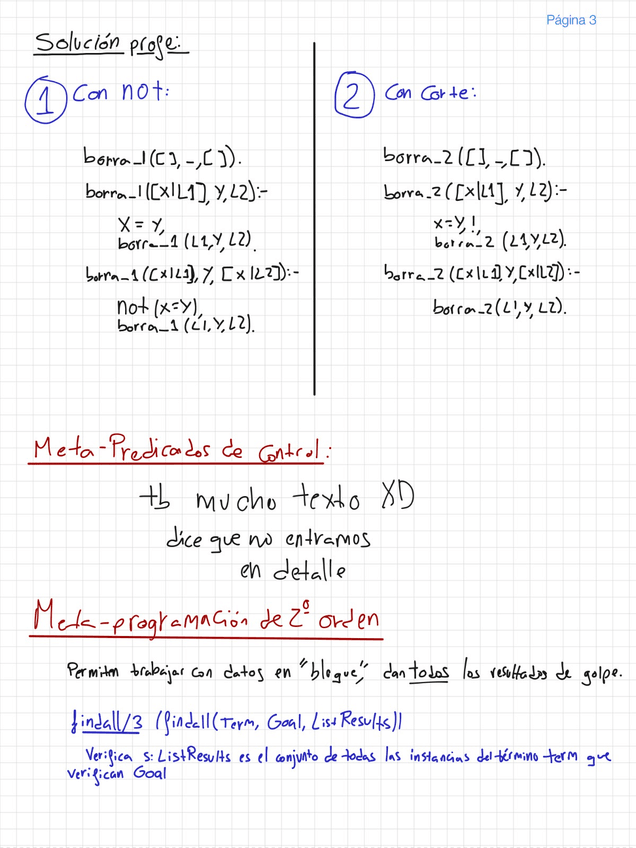 Página 3
Solución profe:
1 Con not:
borra_1([],_,[]).
borra_1([X|L1],Y,L2):-
X=Y,
borra_1(L1,Y,L2).
borra_1([X|L1],Y,[X|L2]):-
not(X=Y),
borra_1(L1,Y,L2).
2 Con Corte:
borra_2([],_,[]).
borra_2([X|L1],Y,L2):-
X=Y,!,
borra_2(L1,Y,L2).
borra_2([X|L1],Y,[X|L2]):-
borra_2(L1,Y,L2).
Meta-Predicados de Control:
tb mucho texto XD
dice que no entramos
en detalle
Meta-programación de 2º orden
Permiten trabajar con datos en "bloque", dan todos los resultados de golpe.
findall/3 (findall(Term, Goal, ListResults))
Verifica si ListResults es el conjunto de todas las instancias del término term que
verifican Goal